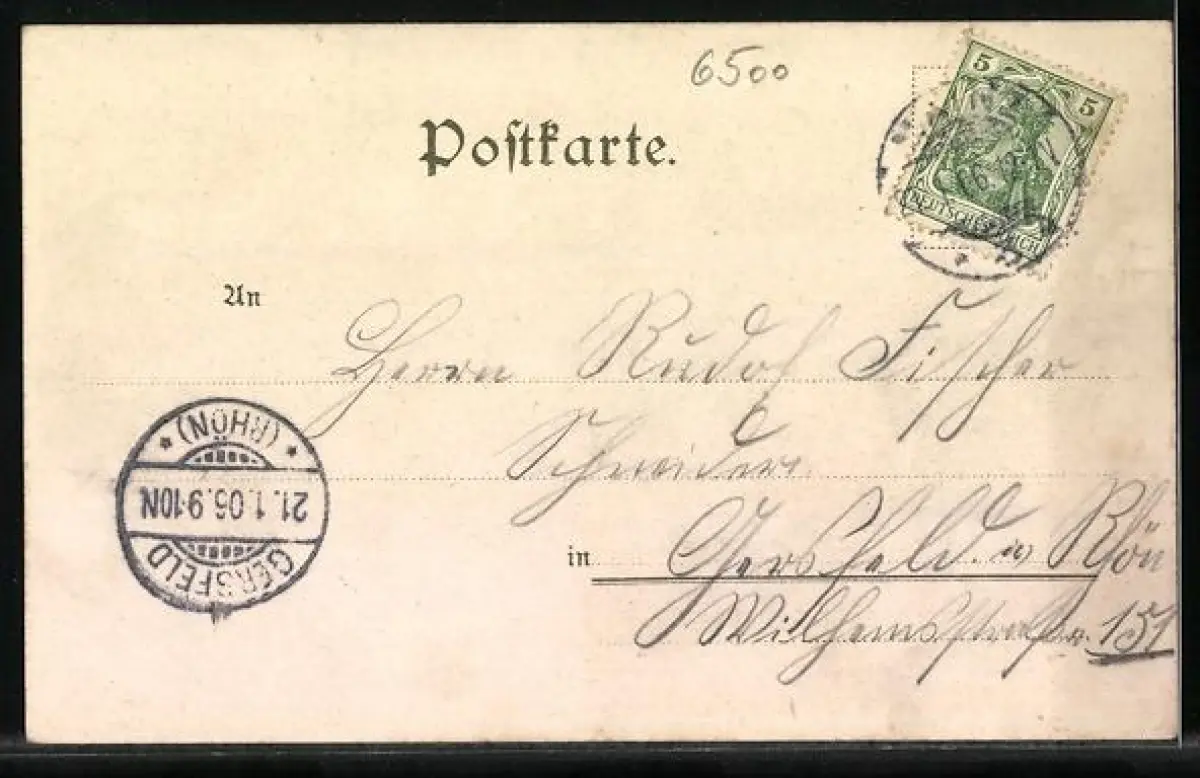 6500
Postkarte.
5 5
DEUTSCHES REICH
An
Herrn Rudolf Fischer
Schneider
in Gersfeld. a Rhön
Wilhemsstraße 151
(RHÖN)
21.1.06.9-10N
GERSFELD